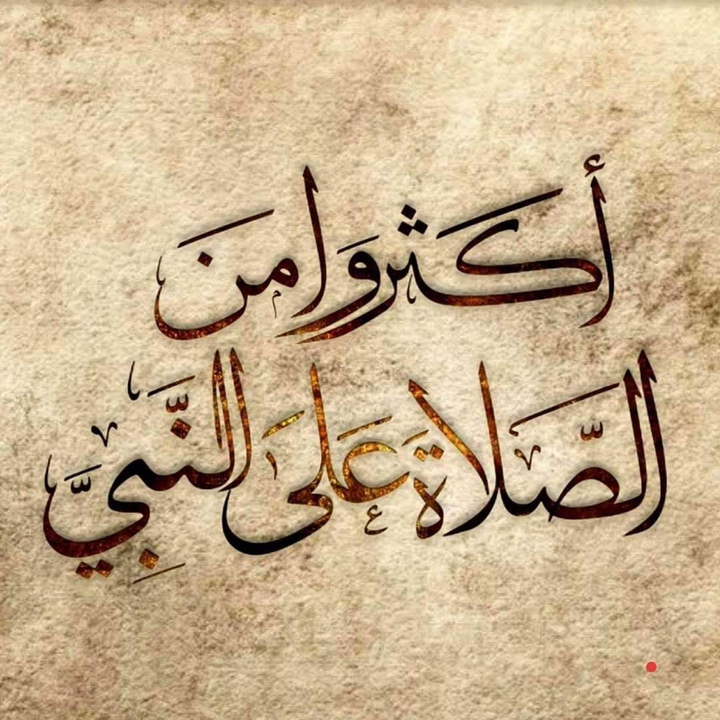 أكثروا من
الصَّلاة عَلى النَّبِيَّ